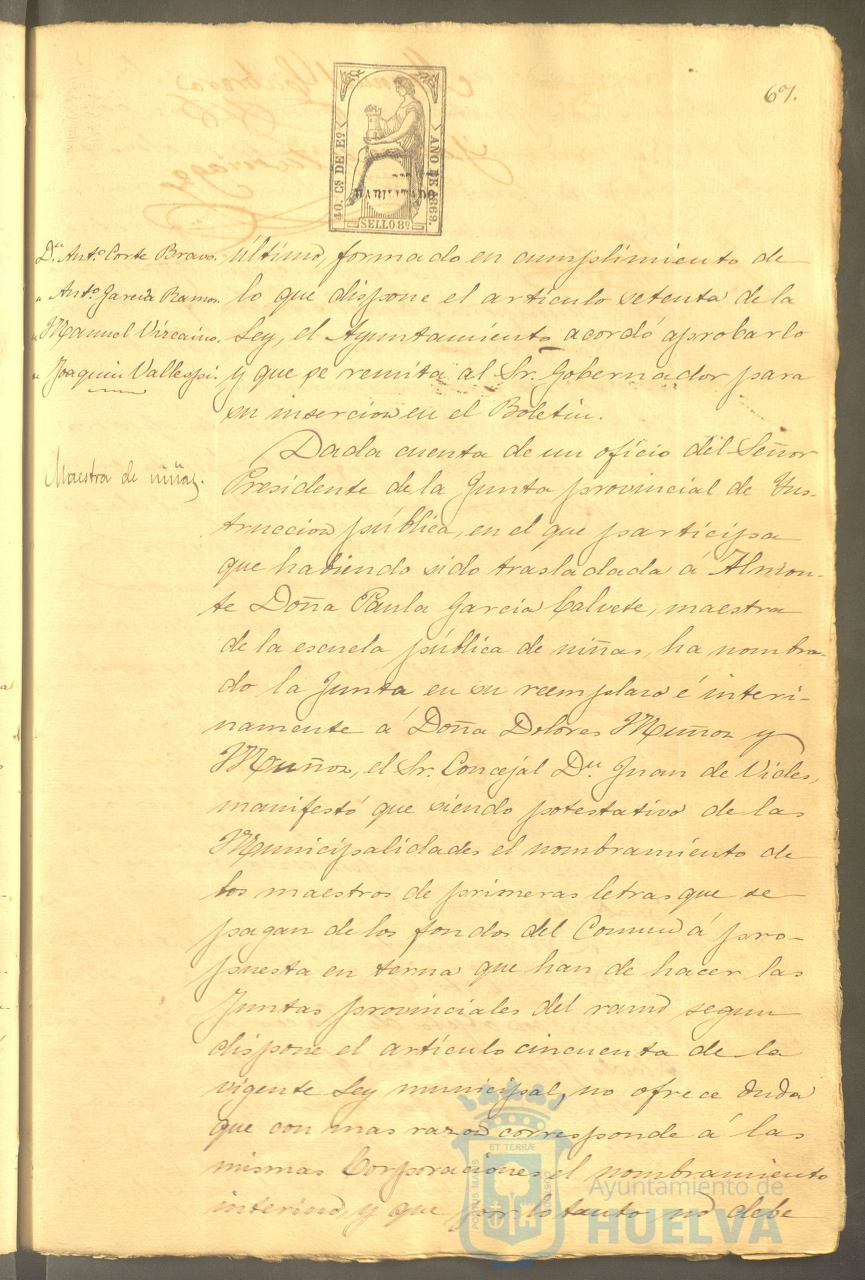 67.
40. Cs DE Eº
AÑO DE 1869.
SELLO 8º
Dn. Antº Corte Bravo.
" Antº Garcia Ramos.
" Manuel Vizcaino.
" Joaquin Vallespi.
último, formado en cumplimiento de
lo que dispone el articulo setenta de la
Ley, el Ayuntamiento acordó aprobarlo
y que se remita al Sr. Gobernador para
su insercion en el Boletin.
Maestra de niñas.
Dada cuenta de un oficio del Señor
Presidente de la Junta provincial de Ins-
truccion pública, en el que participa
que habiendo sido trasladada á Almon-
te Doña Paula Garcia Calvete, maestra
de la escuela pública de niñas, ha nombra-
do la Junta en su reemplazo é interi-
namente á Doña Dolores Muñoz y
Muñoz, el Sr. Concejal Dn. Juan de Vides,
manifestó que siendo potestativo de las
Municipalidades el nombramiento de
los maestros de primeras letras que se
pagan de los fondos del Comun á pro-
puesta en terna que han de hacer las
Juntas provinciales del ramo segun
dispone el artículo cincuenta de la
vigente Ley municipal, no ofrece duda
que con mas razon corresponde á las
mismas Corporaciones el nombramiento
interino, y que por lo tanto no debe
Ayuntamiento de
HUELVA